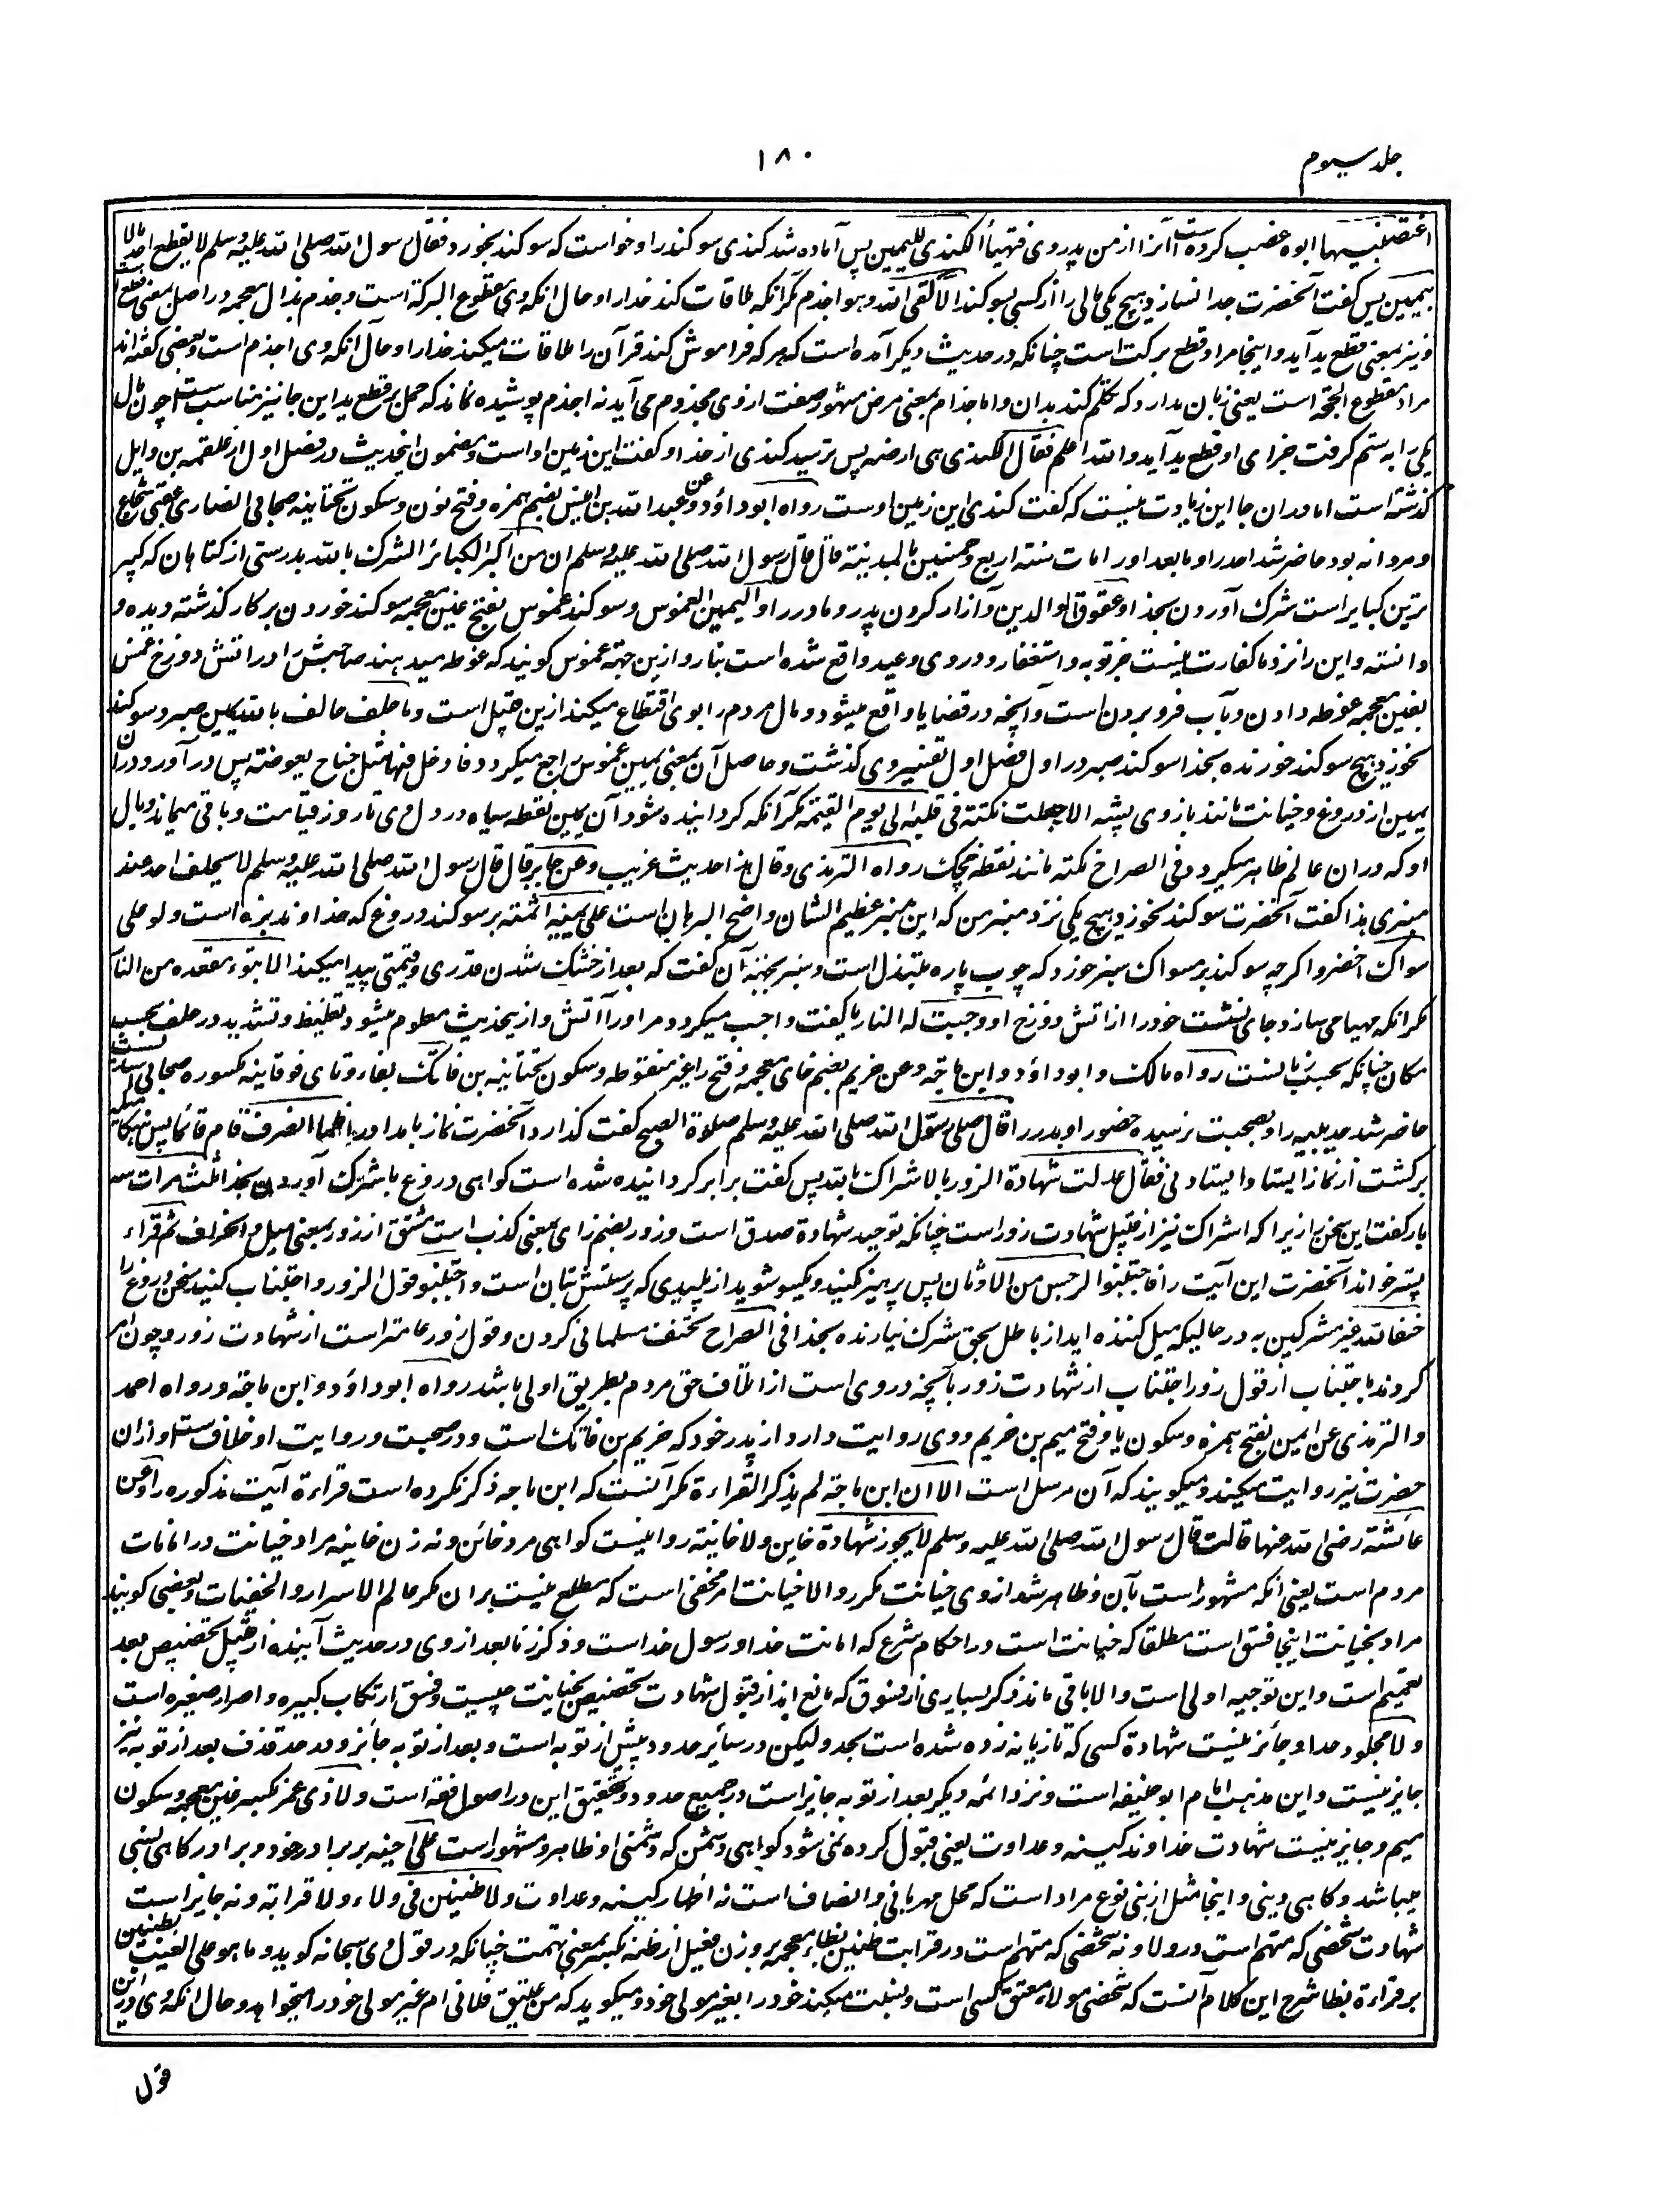 جلد سیوم
۱۸۰
اغتصبنیها ابوه غضب کرده است آنرا از من پدر وی فتهیأ الکندی للیمین پس آماده شد کندی سوکند را و خواست که سوکند بخورد فقال رسول الله صلی الله علیه وسلم لا یقطع احد مالا
بیمین پس کفت آنحضرت جدا نسازد هیچ یکی مالی را از کسی بسوکند الا لقی الله وهو اجذم مکر آنکه ملاقات کند خدا را و حال آنکه وی مقطوع البرکة است و جذم بذال معجمه در اصل بمعنی قطع است
و نیز بمعنی قطع ید آید و اینجا مراد قطع برکت است چنانکه در حدیث دیکر آمده است که هر که فراموش کند قرآن را ملاقات میکند خدا را و حال آنکه وی اجذم است و بعضی کفته اند
مراد مقطوع الحجة است یعنی زبان ندارد که تکلم کند بدان و اما جذام بمعنی مرض مشهور صفت از وی مجذوم می آید نه اجذم پوشیده نماند که حمل بر قطع ید این جا نیز مناسب است چون مال
یکی را به ستم کرفت جزای او قطع ید آید والله اعلم فقال الکندی هی ارضه پس ترسید کندی از خدا و کفت این زمین او است و مضمون این حدیث در فصل اول از علقمة بن وایل
کذشته است اما در ان جا این زیادت نیست که کفت کندی این زمین اوست رواه ابو داؤد وعن عبد الله بن انیس بضم همزه و فتح نون و سکون تحتانیه صحابی انصاری عقبی شجاع
و مردانه بود حاضر شد احد را و ما بعد او را مات سنة اربع وخمسین بالمدینة قال قال رسول الله صلی الله علیه وسلم ان من اکبر الکبائر الشرک بالله بدرستی از کناهان که کبیر
ترین کبایر است شرک آوردن بخدا وعقوق الوالدین و آزار کردن پدر و مادر را والیمین الغموس و سوکند غموس بفتح غین معجمه سوکند خوردن بر کار کذشته دیده و
دانسته و این را نزد ما کفارت نیست جز توبه و استغفار و در وی وعید واقع شده است بنار و ازین جهة غموس کویند که غوطه میدهند صاحبش را در آتش دوزخ غمس
بغین معجمه غوطه دادن و بآب فرو بردن است و آنچه در قضایا واقع میشود و مال مردم را بوی اقتطاع میکنند ازین قبیل است وما حلف حالف بالله یمین صبر و سوکند
نخورد هیچ سوکند خورنده بخدا سوکند صبر در اول فصل اول تفسیر وی کذشت و حاصل آن بمعنی یمین غموس راجع میکردد فادخل فیها مثل جناح بعوضة پس در آورد در ان
یمین از دروغ و خیانت مانند بازوی پشه الا جعلت نکتة فی قلبه الی یوم القیمة مکر آنکه کردانیده شود آن یمین نقطه سیاه در دل وی تا روز قیامت و باقی میماند وبال
او که در ان عالم ظاهر میکردد و فی الصراح نکته مانند نقطه خچک رواه الترمذی وقال هذا حدیث غریب وعن جابر قال قال رسول الله صلی الله علیه وسلم لا یحلف احد عند
منبری هذا کفت آنحضرت سوکند نخورد هیچ یکی نزد منبر من که این منبر عظیم الشان واضح البرهان است علی یمین آثمة بر سوکند دروغ که خداوند بزه است ولو علی
سواک اخضر و اکرچه سوکند بر مسواک سبز خورد که چوب پاره مبتذل است و سبز بجهة آن کفت که بعد از خشک شدن قدری و قیمتی پیدا میکند الا تبوء مقعده من النار
مکر آنکه مهیا می سازد جای نشست خود را از آتش دوزخ او وجبت له النار یا کفت واجب میکردد مر او را آتش و از این حدیث معلوم میشود تغلیظ و تشدید در حلف بحسب
مکان چنانکه بحسب زمانست رواه مالک وابو داؤد وابن ماجة وعن خریم بضم خای معجمه و فتح راء غیر منقوطه و سکون تحتانیه بن فاتک بفاء و تای فوقانیه مکسوره صحابی است
حاضر شد حدیبیه را و بصحبت نرسیده حضور او بدر را قال صلی رسول الله صلی الله علیه وسلم صلوة الصبح کفت کذارد آنحضرت نماز بامداد را فلما انصرف قام قائما پس هنکامیکه
برکشت از نماز ایستاد ایستادنی فقال عدلت شهادة الزور بالاشراک بالله پس کفت برابر کردانیده شده است کواهی دروغ با شرک آوردن بخدا ثلث مرات سه
بار کفت این سخن را زیرا که اشراک نیز از قبیل شهادت زور است چنانکه توحید شهادة صدق است و زور بضم زای بمعنی کذب است مشتق از زور بمعنی میل و انحراف ثم قراء
پستر خواند آنحضرت این آیت را فاجتنبوا الرجس من الاوثان پس پرهیز کنید و یکسو شوید از پلیدی که پرستش بتان است واجتنبوا قول الزور و اجتناب کنید سخن دروغ را
حنفاء لله غیر مشرکین به در حالیکه میل کننده اید از باطل بحق شرک نیارنده بخدا فی الصراح تحنف مسلمانی کردن و قول زور عامتر است از شهادت زور و چون امر
کردند باجتناب از قول زور اجتناب از شهادت زور بآنچه در وی است از اتلاف حق مردم بطریق اولی باشد رواه ابو داؤد وابن ماجة ورواه احمد
والترمذی عن ایمن بفتح همزه و سکون یا و فتح میم بن خریم و وی روایت دارد از پدر خود که خریم بن فاتک است و در صحبت و روایت او خلاف است و از ان
حضرت نیز روایت میکند و میکویند که آن مرسل است الا ان ابن ماجة لم یذکر القراءة مکر آنست که ابن ماجه ذکر نکرده است قراءة آیت مذکوره را وعن
عائشة رضی الله عنها قالت قال رسول الله صلی الله علیه وسلم لا یجوز شهادة خاین ولا خاینة روا نیست کواهی مرد خائن و نه زن خاینه مراد خیانت در امانات
مردم است یعنی آنکه مشهور است بآن و ظاهر شد از وی خیانت مکرر والا خیانت امر مخفی است که مطلع نیست بران مکر عالم الاسرار والخفیات و بعضی کویند
مراد بخیانت اینجا فسق است مطلقا که خیانت است در احکام شرع که امانت خدا و رسول خداست و ذکر زنا بعد از وی در حدیث آینده از قبیل تخصیص بعد
تعمیم است و این توجیه اولی است والا باقی ماند ذکر بسیاری از فسوق که مانع اند از قبول شهادت تخصیص بخیانت چیست و فسق ارتکاب کبیره و اصرار صغیره است
ولا مجلود حدا و جائز نیست شهادة کسی که تازیانه زده شده است بحد ولیکن در سائر حدود پیش از توبه است و بعد از توبه جائز و در حد قذف بعد از توبه نیز
جایز نیست و این مذهب امام ابو حنیفه است و نزد ائمه دیکر بعد از توبه جایز است در جمیع حدود و تحقیق این در اصول فقه است ولا ذی غمر بکسر غین معجمه و سکون
میم و جایز نیست شهادت خداوند کینه و عداوت یعنی قبول کرده نمی شود کواهی دشمن که دشمنی او ظاهر و مشهور است علی اخیه بر برادر خود و برادر کاهی نسبی
میباشد و کاهی دینی و اینجا مثل از بنی نوع مراد است که محل مهربانی و انصاف است نه اظهار کینه و عداوت ولا ظنین فی ولاء ولا قرابة و نه جایز است
شهادت شخصی که متهم است در ولا و نه شخصی که متهم است در قرابت ظنین بظاء معجمه بر وزن فعیل از ظنه بکسر بمعنی تهمت چنانکه در قول وی سبحانه کوید وما هو علی الغیب بظنین
بر قراءة بظا شرح این کلام آنست که شخصی مولاء معتق کسی است و نسبت میکند خود را بغیر مولی خود و میکوید که من عتیق فلانی ام غیر مولی خود را میخواهد و حال آنکه وی درین
قول